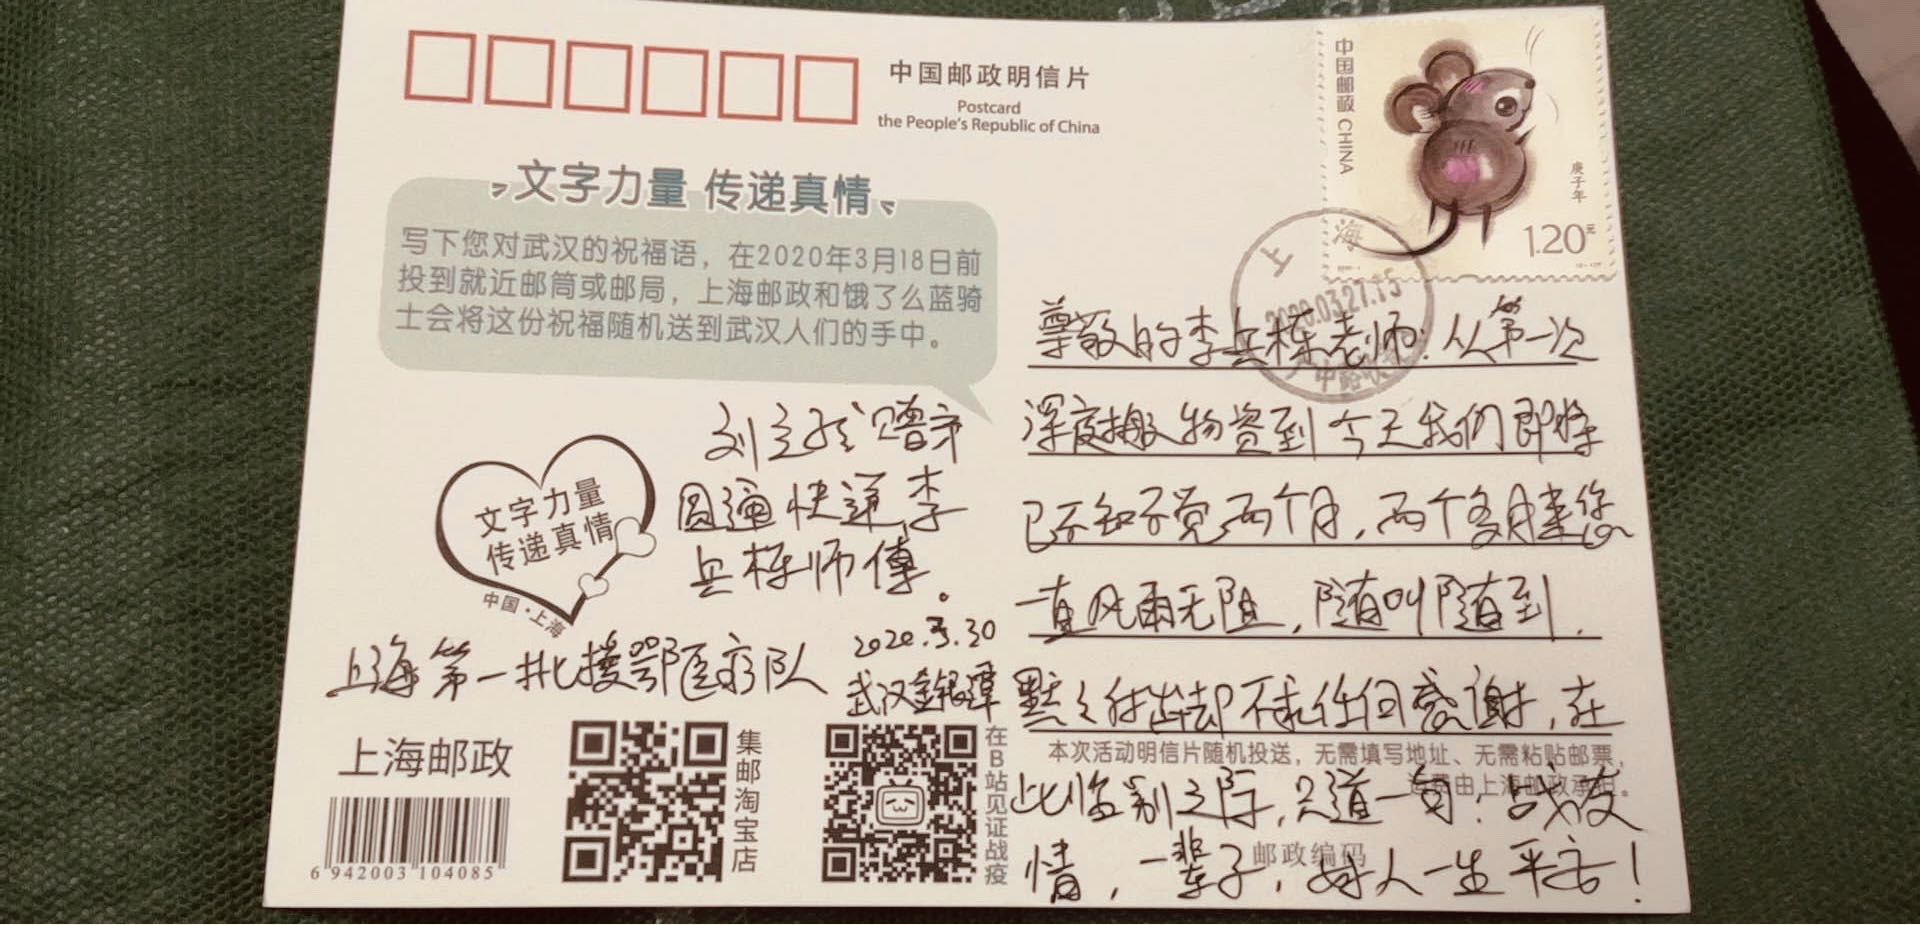 中国邮政明信片
Postcard
the People's Republic of China
中国邮政 CHINA
庚子年
1.20元
文字力量 传递真情
写下您对武汉的祝福语，在2020年3月18日前
投到就近邮筒或邮局，上海邮政和饿了么蓝骑
士会将这份祝福随机送到武汉人们的手中。
上海
2020.03.27.15
尊敬的李兵栋老师：从第一次
深夜搬物资到今天我们即将
已不知不觉两个月，两个多月来您
一直风雨无阻，随叫随到，
默々付出却不求任何感谢，在
此临别之际，只道一句：战友
情，一辈子，好人一生平安！
赠予
圆通快递李
兵栋师傅。
2020.3.30
武汉金银潭
上海第一批援鄂医疗队
文字力量
传递真情
中国·上海
上海邮政
6 942003 104085
集邮淘宝店
在B站见证战疫
本次活动明信片随机投送，无需填写地址、无需粘贴邮票，
运费由上海邮政承担。
邮政编码